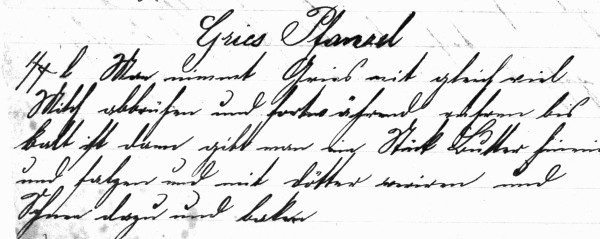 Gries Pfanzel
1/4 l Man nimmt Gries mit gleich viel
Milch abbrühen und fortwährend rühren bis
kalt ist dann gibt man ein Stück Butter hinein
und salzen und mit Dötter und
Schnee dazu und baken